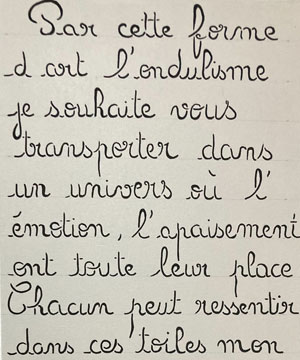 Par cette forme
d art l'ondulisme
je souhaite vous
transporter dans
un univers où l'
émotion, l'apaisement
ont toute leur place
Chacun peut ressentir
dans ces toiles mon